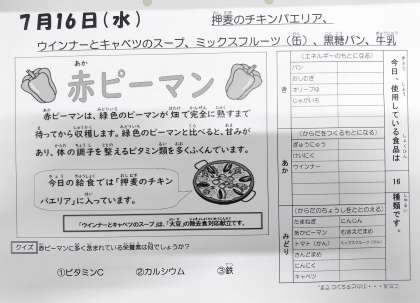 7月16日（水）
押麦のチキンパエリア、
ウインナーとキャベツのスープ、ミックスフルーツ（缶）、黒糖パン、牛乳
あか
赤ピーマン
赤ピーマンは、緑色のピーマンが畑で完全に熟すまで
待ってから収穫します。緑色のピーマンと比べると、甘みが
あり、体の調子を整えるビタミン類を多くふくんでいます。
今日の給食では「押麦のチキン
パエリア」に入っています。
「ウインナーとキャベツのスープ」は、「大豆」の除去食対応献立です。
クイズ 赤ピーマンに多く含まれている栄養素は何でしょうか？
①ビタミンC ②カルシウム ③鉄
今日、使用している食品は
16
種類です。
き
（エネルギーのもとになる）
パン
おしむぎ
オリーブ油
じゃがいも
あか
（からだをつくるもとになる）
ぎゅうにゅう
けいにく
ウインナー
みどり
（からだのちょうしをととのえる）
たまねぎ にんじん
あかピーマン むきえだまめ
トマト（かん） ミックスフルーツ（かん）
さんどまめ
にんにく
キャベツ